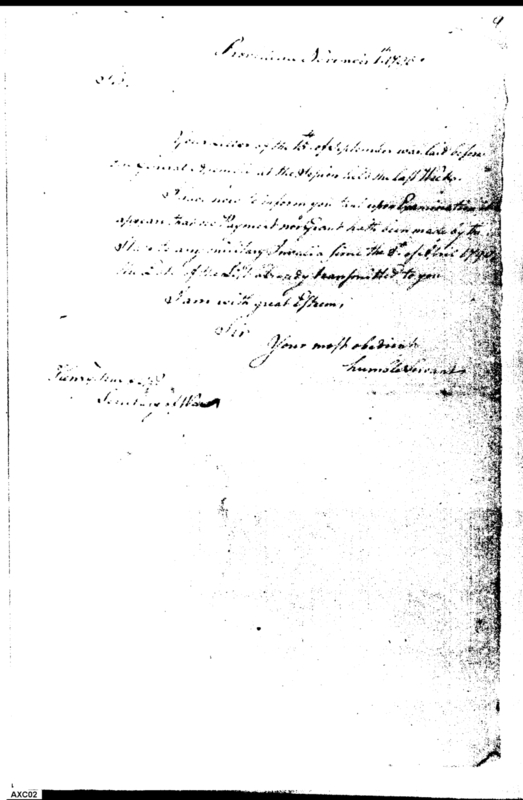 9
Providence November 1st 1790.
Sir.
Your letter of the 15th of September was laid before
General Assembly at the Session held the last Week.
I have now to inform you that upon Examination it
appears that no Payment nor Grant hath been made by the
State to any military Invalid since the of 1790
the Date of the List already transmitted to you
I am with great Esteem,
Sir
Your most obedient
humble Servant
Henry Knox Esqr
Secretary of War
AXC02